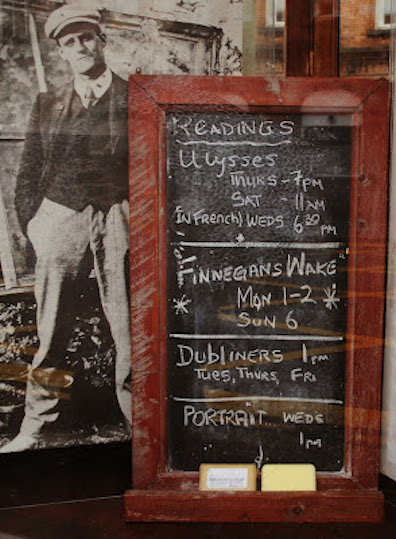 READINGS
Ulysses
THURS - 7PM
SAT - 11AM
IN French) WEDS 6 30 PM
FINNEGANS WAKE
MON 1-2 *
* SUN 6
DUBLINERS 1pm
TUES, THURS, FRI
PORTRAIT... WEDS
1pm